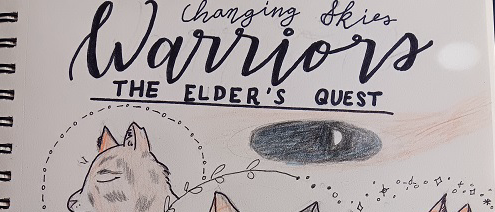 Changing Skies
Warriors
THE ELDER'S QUEST